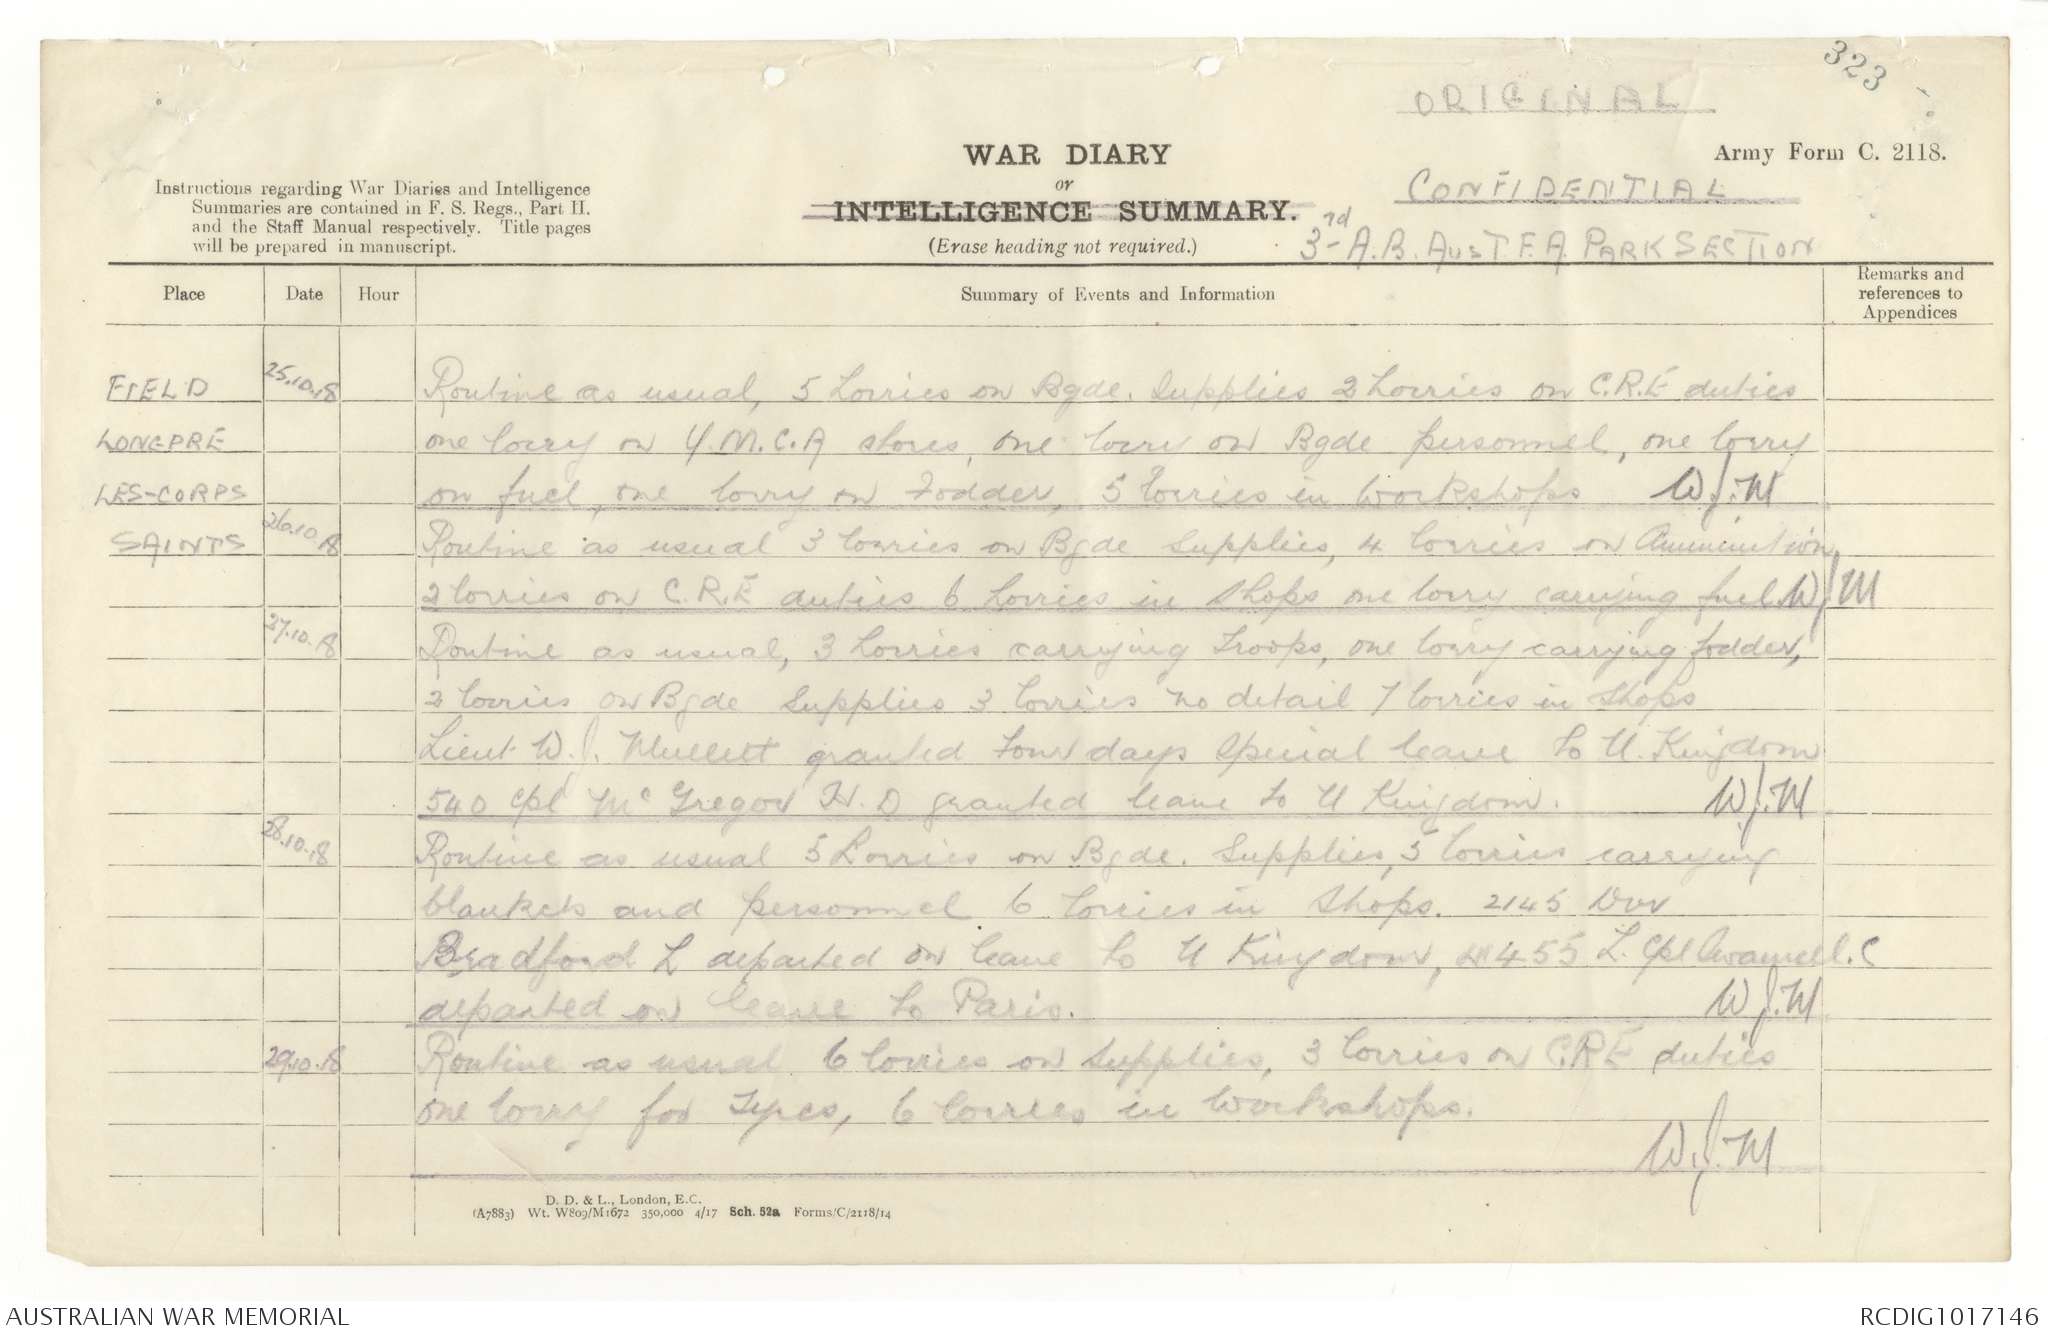 323
ORIGINAL
WAR DIARY
Army Form C. 2118.
or
CONFIDENTIAL
INTELLIGENCE SUMMARY.
(Erase heading not required.)
3rd A.B. AUST. F.A. PARK SECTION
Instructions regarding War Diaries and Intelligence
Summaries are contained in F. S. Regs., Part II.
and the Staff Manual respectively. Title pages
will be prepared in manuscript.
Place Date Hour Summary of Events and Information Remarks and references to Appendices
FIELD 25.10.18 Routine as usual, 5 Lorries on Bgde. Supplies 2 Lorries on C.R.E duties
LONGPRÉ one lorry on Y.M.C.A stores, one lorry on Bgde personnel, one lorry
LES-CORPS on fuel, one lorry on Fodder, 5 lorries in workshops W.J.M
SAINTS 26.10.18 Routine as usual 3 lorries on Bgde Supplies, 4 lorries on Ammunition,
2 lorries on C.R.E duties 6 Lorries in Shops one lorry carrying fuel. W.J.M
27.10.18 Routine as usual, 3 Lorries carrying Troops, one lorry carrying fodder,
2 lorries on Bgde Supplies 3 lorries no detail 7 lorries in Shops
Lieut W. J. Mullett granted four days Special leave to U. Kingdom
540 Cpl McGregor H. D granted leave to U Kingdom. W.J.M
28.10.18 Routine as usual 5 Lorries on Bgde. Supplies, 5 lorries carrying
blankets and personnel 6 lorries in Shops. 2145 Dvr
Bradford L departed on leave to U Kingdom, 455 L. Cpl C
departed on leave to Paris. W.J.M
29.10.18 Routine as usual 6 lorries on Supplies, 3 lorries on C.R.E duties
one lorry for Tyres, 6 lorries in workshops.
W.J.M
D. D. & L., London, E.C.
(A7883) Wt. W809/M1672 350,000 4/17 Sch. 52a Forms/C/2118/14
AUSTRALIAN WAR MEMORIAL RCDIG1017146